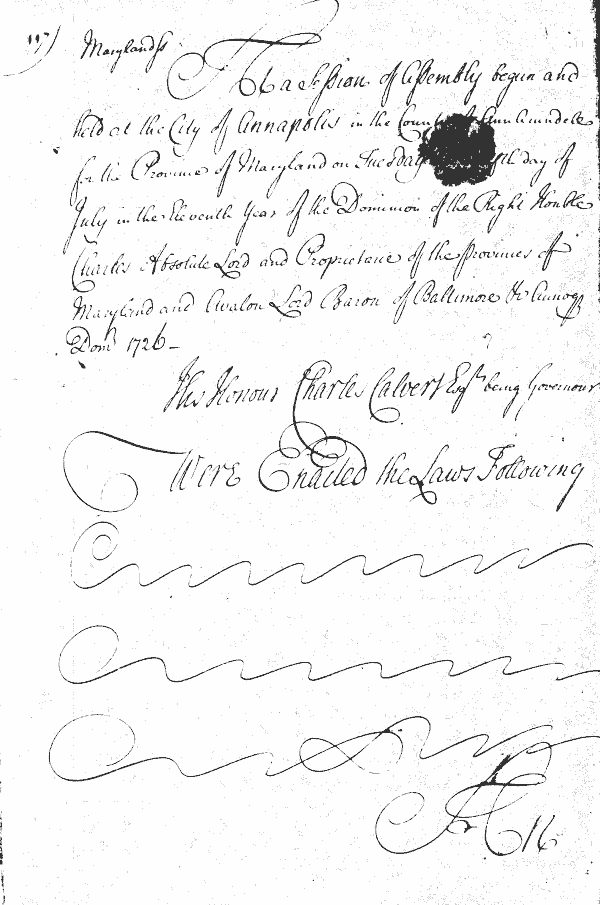 117)
Maryland ss
At a Session of Assembly begun and
held at the City of Annapolis in the County of Ann Arundele
for the Province of Maryland on Tuesday day of
July in the Eleventh Year of the Dominion of the Right Honble
Charles Absolute Lord and Proprietarie of the Provinces of
Maryland and Avalon Lord Baron of Baltimore &c Annoqe
Dom 1726 -
His Honour Charles Calvert Esqr being Governour
Were Enacted the Laws Following